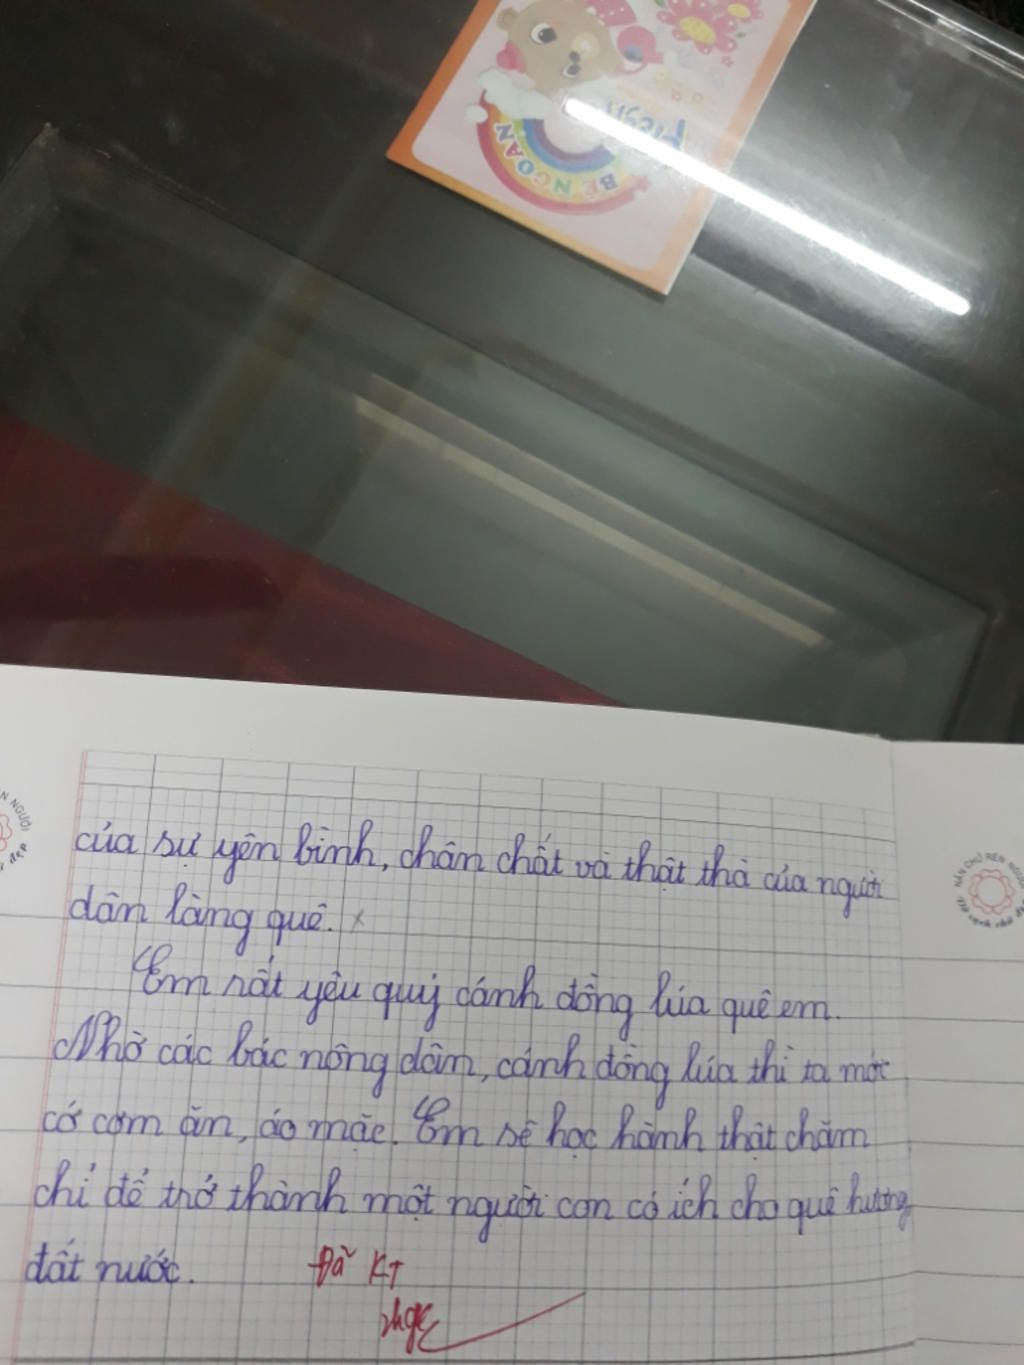 BÉ NGOAN
của sự yên bình, chân chất và thật thà của người
dân làng quê.
Em rất yêu quý cánh đồng lúa quê em.
Nhờ các bác nông dân, cánh đồng lúa thì ta mới
có cơm ăn, áo mặc. Em sẽ học hành thật chăm
chỉ để trở thành một người con có ích cho quê hương
đất nước.
Đã KT
NẮN CHỮ RÈN NGƯỜI